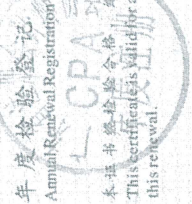 年度检验登记
Annual Renewal Registration
本证书经检验合格
This certificate is valid for a
this renewal.
CPA
年度注册